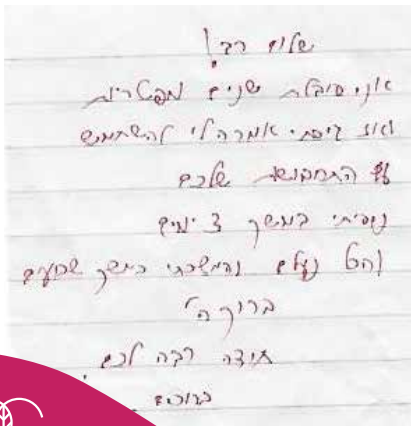 שלום רב!
אני סובלת שנים מפטריות
ואז גיסתי אמרה לי להשתמש
עם התחבושת שלכם
ניסיתי במשך 3 ימים
והכל נעלם והמשכתי כמשך שבועיים
ברוך ה'
תודה רבה לכם